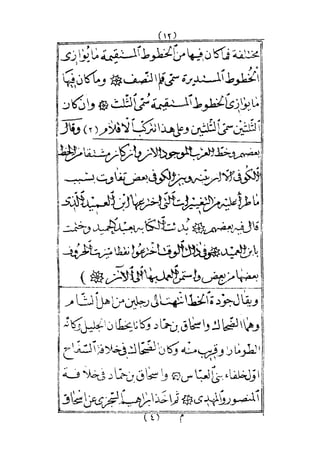 (١٢)
مختلفة فما كان فيها من الخطوط المستقيمة ما يوازى
الخطوط المستديرة سمى قلم النصف وما كان فيها
ما يوازى الخطوط المستقيمة سمى الثلث وان كان
الثلثين سمى الثلثين وعلى هذا تتركب الاقلام (٢) وقال
بعضهم وخط العرب الموجود الان وان كان مشتقا من الخط
الكوفى الا ان بينه وبين الكوفى بعض تفاوت بسبب
ما طرأ عليه من التغييرات التى اخترعها ابن العميد الذى
قال فيه بعضهم بدئت الكتابة بعبد الحميد وختمت
بابن العميد وفى ذلك الوقت اخترعوا نقطا ميزت الحروف
بعضها من بعض واستمر العمل بها الى الآن )
ويقال جودة الخط انتهت الى رجلين من اهل الشام
وهما الضحاك واسحاق بن حماد وكانا يخطان الجليل وكانه
الطومار او قريب منه وكان الضحاك فى خلافة السفاح
اول خلفاء بنى العباس واسحاق بن حماد فى خلافة
المنصور والمهدى ثم اخذ ابراهيم السجزى عن اسحاق
م (٤)